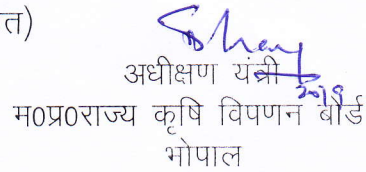 त)
अधीक्षण यंत्री
म०प्र०राज्य कृषि विपणन बोर्ड
भोपाल